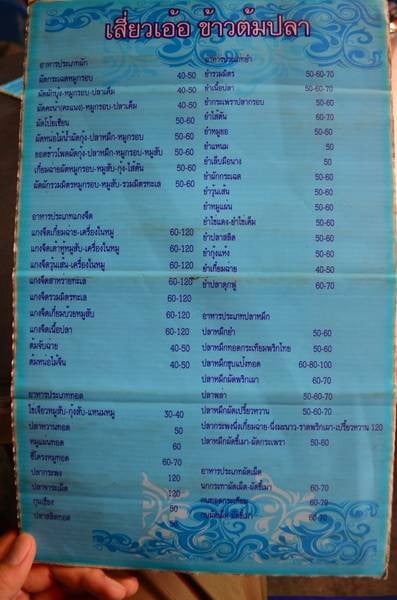 เสี่ยวเอ้อ ข้าวต้มปลา
อาหารประเภทผัก
ผัดกระเฉดหมูกรอบ 40-50
ผัดผักบุ้ง-หมูกรอบ-ปลาเค็ม 40-50
ผัดคะน้า(คะแนง)-หมูกรอบ-ปลาเค็ม 40-50
ผัดโป๊ยเซียน 50-60
ผัดหน่อไม้น้ำผัดกุ้ง-ปลาหมึก-หมูกรอบ 50-60
ยอดข้าวโพดผัดกุ้ง-ปลาหมึก-หมูกรอบ-หมูสับ 50-60
เกี้ยมฉ่ายผัดหมูกรอบ-หมูสับ-กุ้ง-ไส้ตัน 50-60
ผัดผักรวมมิตรหมูกรอบ-หมูสับ-รวมมิตรทะเล 50-60
อาหารประเภทแกงจืด
แกงจืดเกี้ยมฉ่าย-เครื่องในหมู 60-120
แกงจืดเต้าหู้หมูสับ-เครื่องในหมู 60-120
แกงจืดวุ้นเส้น-เครื่องในหมู 60-120
แกงจืดสาหร่ายทะเล 60-120
แกงจืดรวมมิตรทะเล 60-120
แกงจืดเกี้ยมบ๊วยหมูสับ 60-120
แกงจืดเนื้อปลา 60-120
ต้มจับฉ่าย 40-50
ต้มหน่อไม้จีน 40-50
อาหารประเภททอด
ไข่เจียวหมูสับ-กุ้งสับ-แหนมหมู 30-40
ปลาหวานทอด 50
หมูแผ่นทอด 60
ซี่โครงหมูทอด 60-70
ปลากระพง 120
ปลาจาระเม็ด 120
กุนเชียง 50
ปลาสลิดทอด
อาหารประเภทยำ
ยำรวมมิตร 50-60-70
ยำเนื้อปลา 50-60-70
ยำกระเพราปลากรอบ 50-60
ยำไส้ตัน 60-70
ยำหมูยอ 50-60
ยำแหนม 50
ยำเล็บมือนาง 50
ยำผักกระเฉด 50-60
ยำวุ้นเส้น 50-60
ยำหมูแผ่น 50-60
ยำไข่แดง-ยำไข่เค็ม 50-60
ยำปลาสลิด 50-60
ยำกุ้งแห้ง 50-60
ยำเกี้ยมฉ่าย 40-50
ยำปลาดุกฟู 60-70
อาหารประเภทปลาหมึก
ปลาหมึกยำ 50-60
ปลาหมึกทอดกระเทียมพริกไทย 50-60
ปลาหมึกชุบแป้งทอด 60-80-100
ปลาหมึกผัดพริกเผา 60-70
ปลาพล่า 50-60-70
ปลาหมึกผัดเปรี้ยวหวาน 50-60-70
ปลากระพงนึ่งเกี้ยมฉ่าย-นึ่งมะนาว-ราดพริกเผา-เปรี้ยวหวาน 120
ปลาหมึกผัดขี้เมา-ผัดกระเพรา 50-60
อาหารประเภทผัดเผ็ด
นกกระทาผัดเผ็ด-ผัดขี้เมา 60-70
กบทอดกระเทียม 60-70
กบผัดเผ็ด-ผัดขี้เมา 60-70